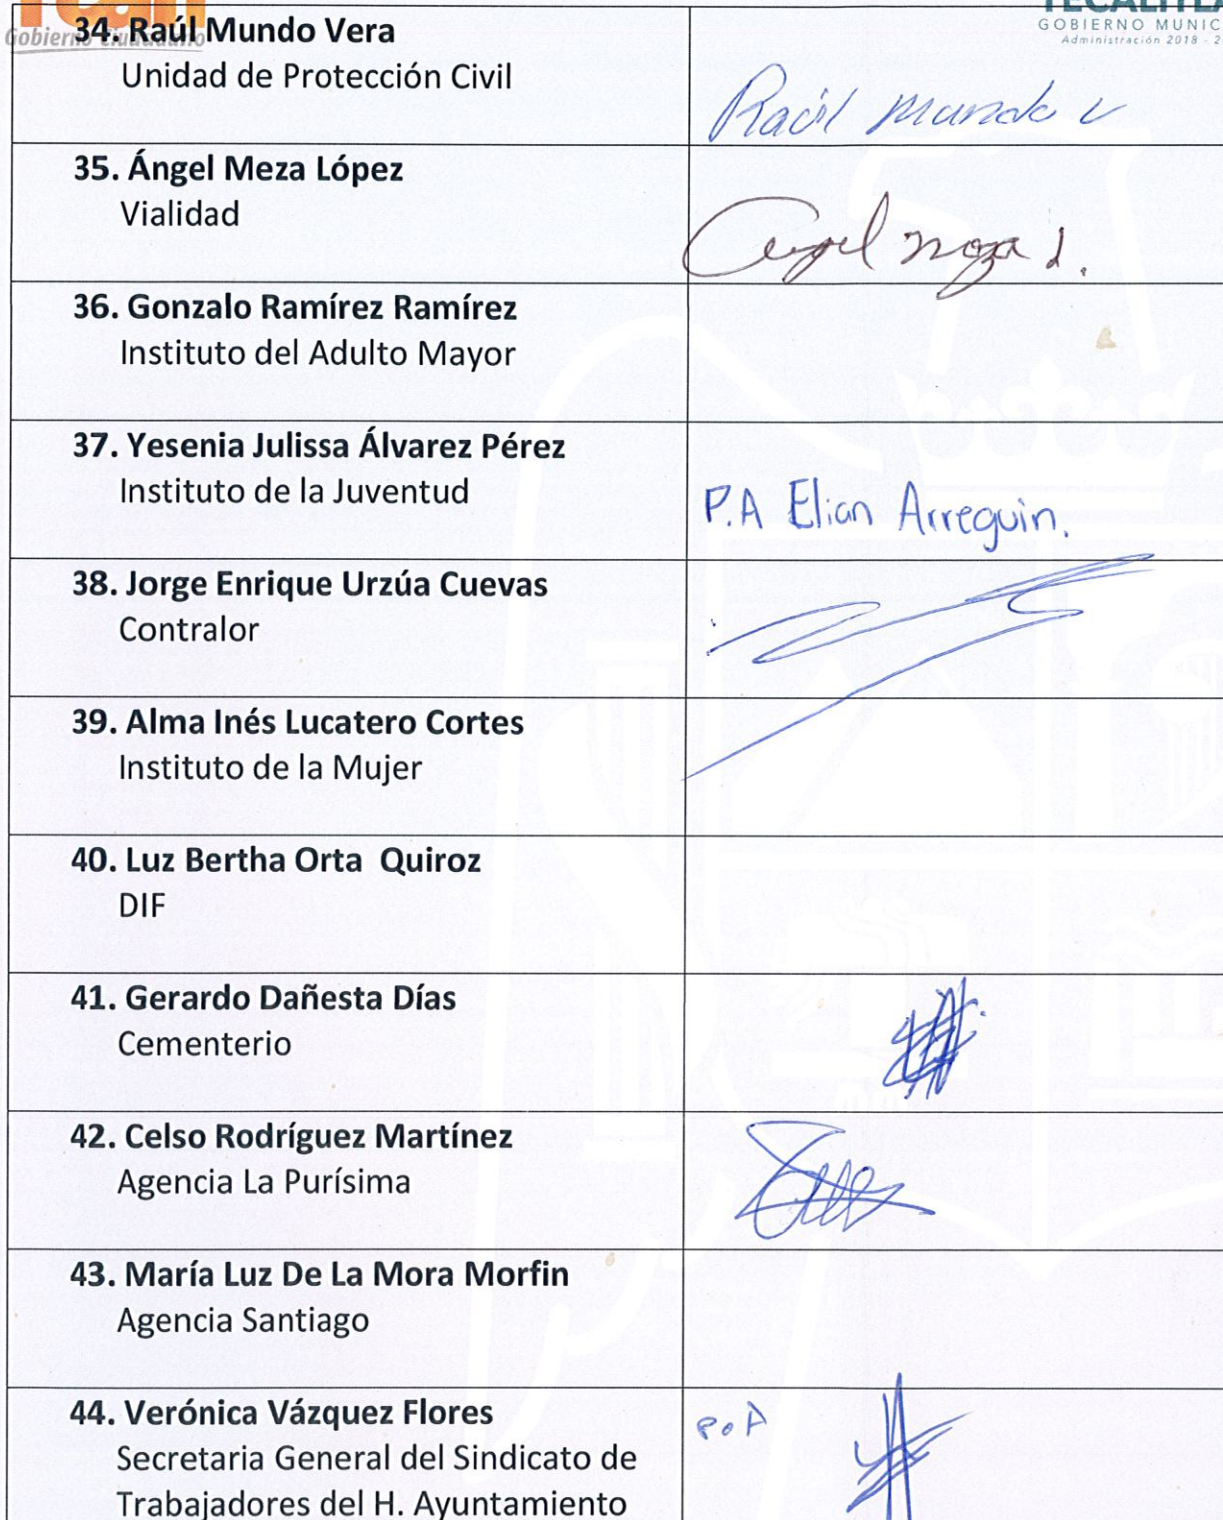 Gobierno Ciudadano
GOBIERNO MUNIC
Administración 2018 - 2
34. Raúl Mundo Vera
Unidad de Protección Civil
Raúl Mundo V
35. Ángel Meza López
Vialidad
Angel Meza L.
36. Gonzalo Ramírez Ramírez
Instituto del Adulto Mayor
37. Yesenia Julissa Álvarez Pérez
Instituto de la Juventud
P.A Elian Arreguin.
38. Jorge Enrique Urzúa Cuevas
Contralor
39. Alma Inés Lucatero Cortes
Instituto de la Mujer
40. Luz Bertha Orta  Quiroz
DIF
41. Gerardo Dañesta Días
Cementerio
42. Celso Rodríguez Martínez
Agencia La Purísima
43. María Luz De La Mora Morfin
Agencia Santiago
44. Verónica Vázquez Flores
P.A
Secretaria General del Sindicato de
Trabajadores del H. Ayuntamiento